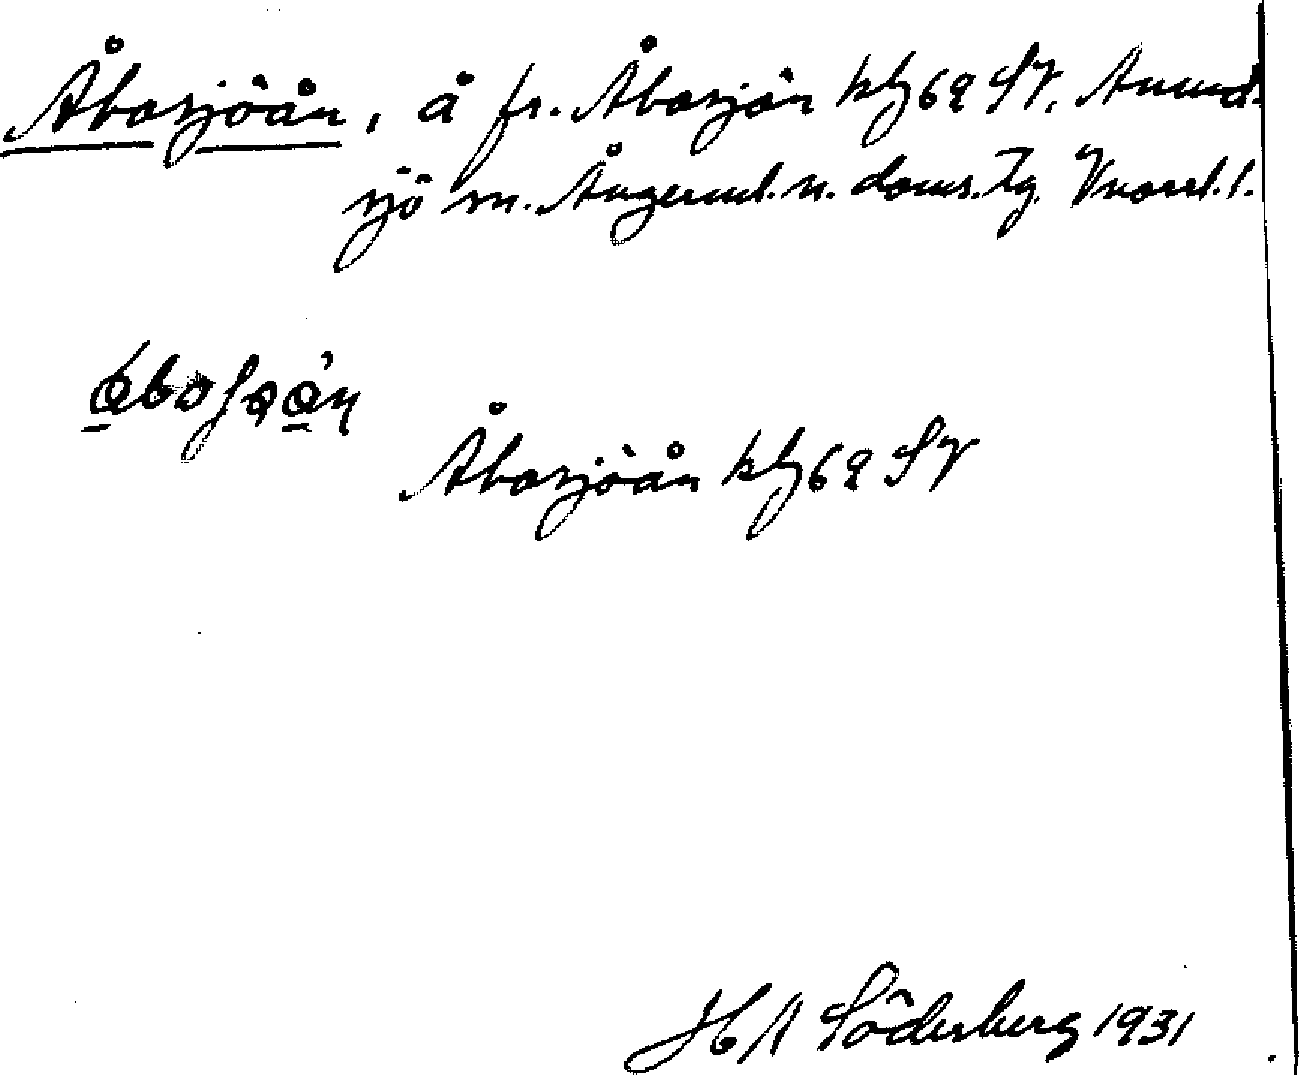 Åbosjöån, å fr. Åbosjön kbl 62 SV. Anund-
sjö sn. Ångerml. n. doms. Tg. Vnorrl. l.
Åbosjöån kbl 62 SV
H A Söderberg 1931